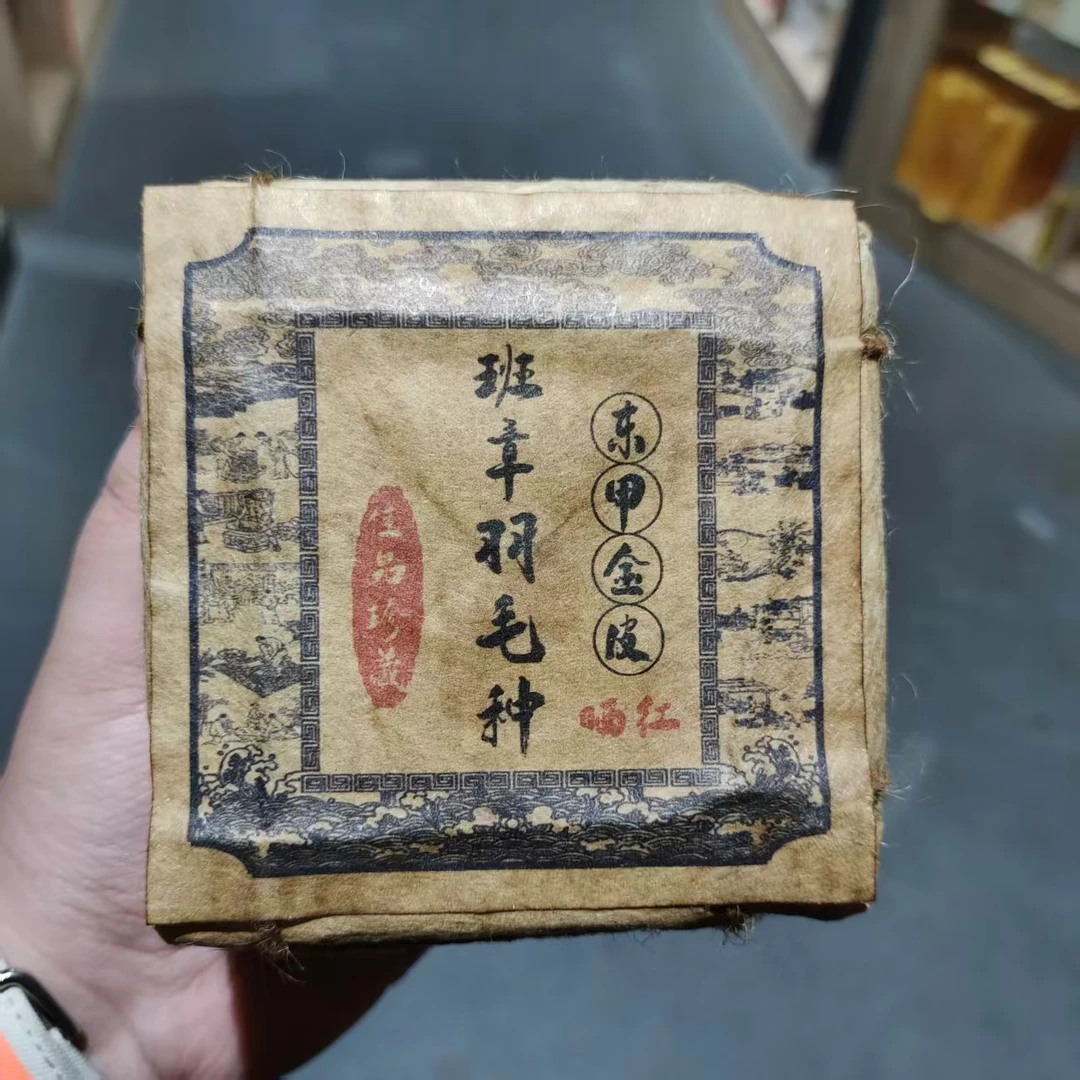 东甲金皮
晒红
班章羽毛种
佳品珍藏